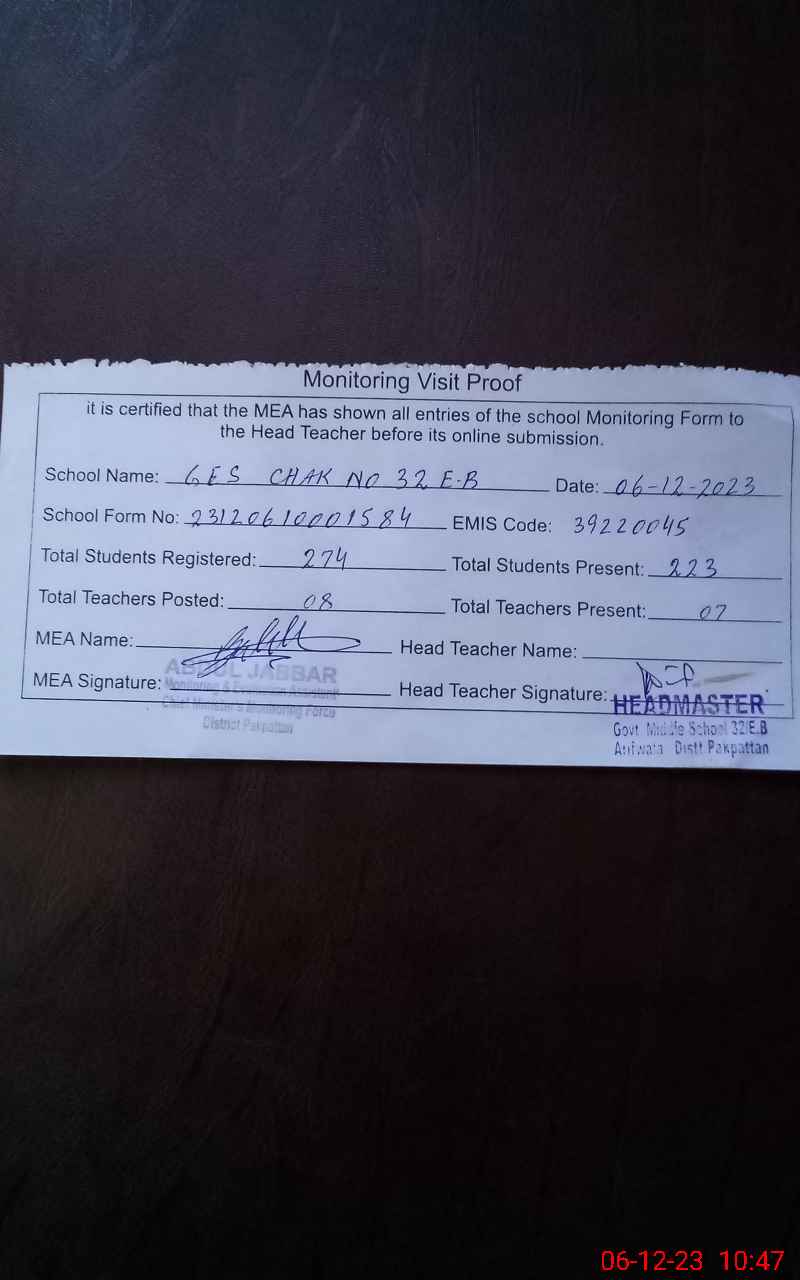 Monitoring Visit Proof
it is certified that the MEA has shown all entries of the school Monitoring Form to
the Head Teacher before its online submission.
School Name: GES CHAK NO 32 E-B Date: 06-12-2023
School Form No: 23120610001584 EMIS Code: 39220045
Total Students Registered: 274 Total Students Present: 223
Total Teachers Posted: 08 Total Teachers Present: 07
MEA Name: Head Teacher Name:
MEA Signature: Head Teacher Signature:
ABDUL JABBAR
Monitoring & Evaluation Assistant
Chief Minister's Monitoring Force
District Pakpattan
HEADMASTER
Govt. Middle School 32/E.B
Arifwala Distt Pakpattan
06-12-23 10:47